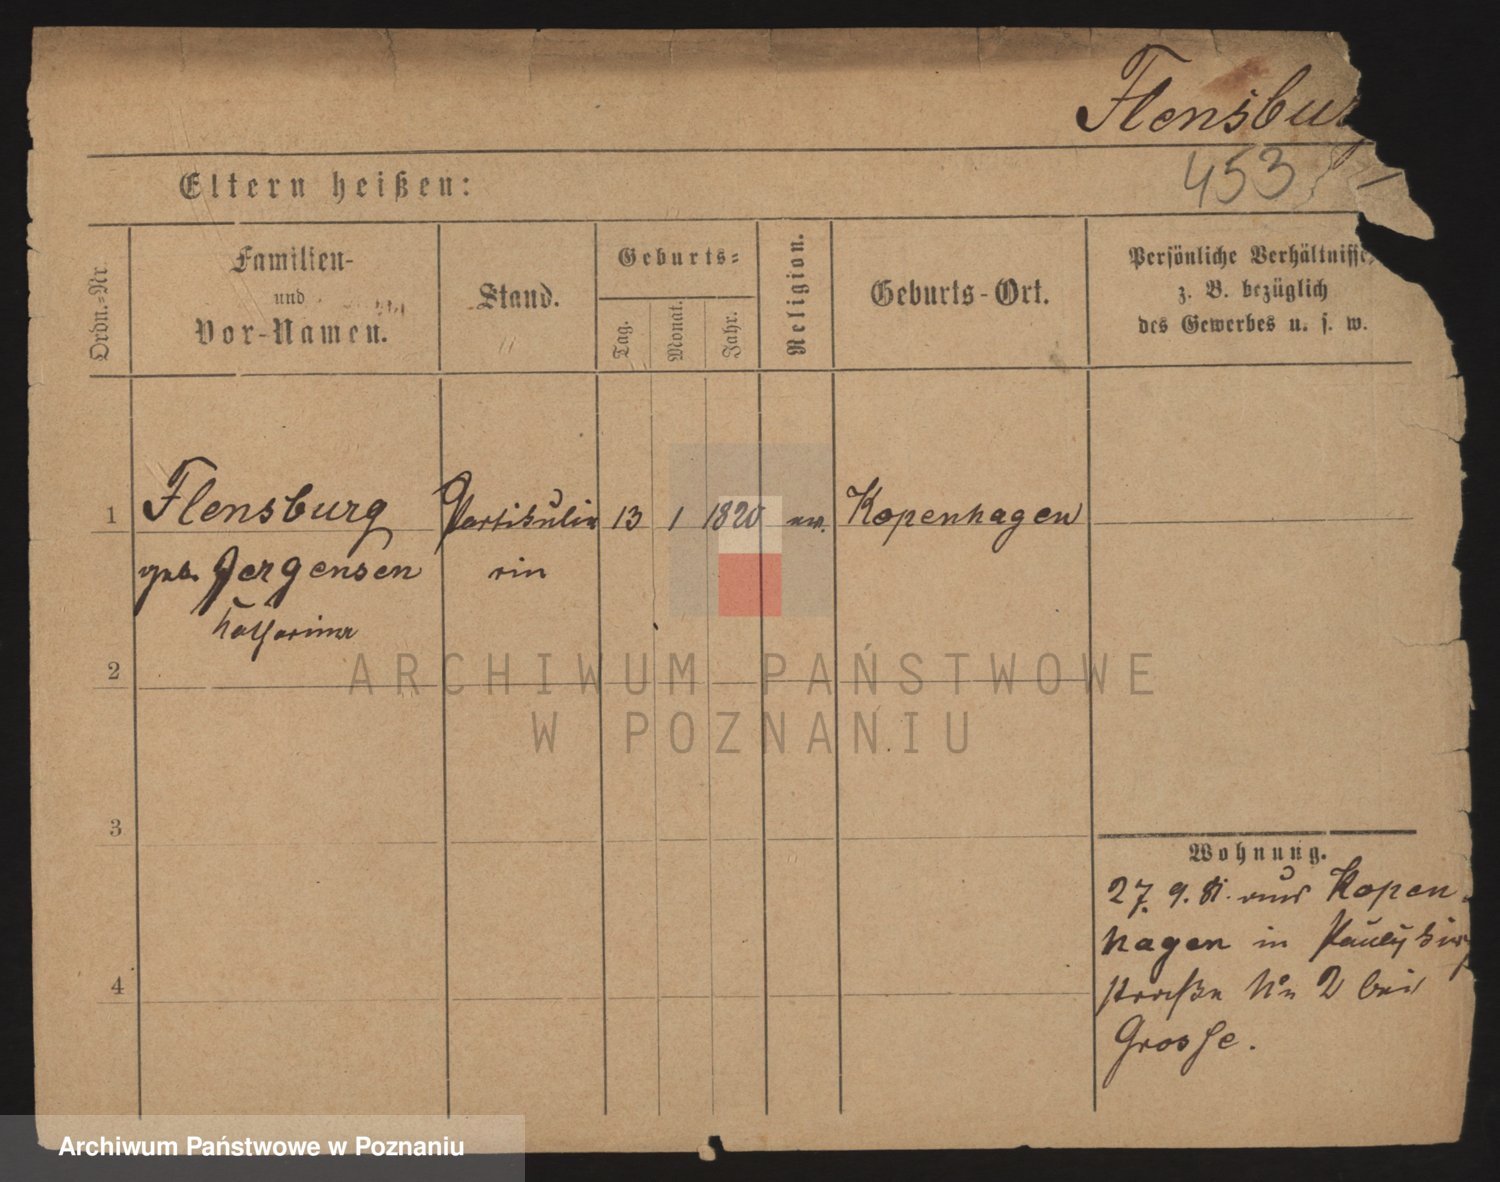 Flensburg
453
Eltern heißen:
Ordn.-Nr.
Familien-
und
Vor-Namen.
Stand.
Geburts-
Tag.
Monat.
Jahr.
Religion.
Geburts-Ort.
Persönliche Verhältnisse,
z. B. bezüglich
des Gewerbes u. s. w.
1 Flensburg Partikulie 13 1 1820 ev. Kopenhagen
geb. Jergensen rin
Katharina
2
3
4
Wohnung.
27. 9. 81. aus Kopen-
hagen in Paulikirch
straße No 2 bei
Grosse.
ARCHIWUM PAŃSTWOWE
W POZNANIU
Archiwum Państwowe w Poznaniu